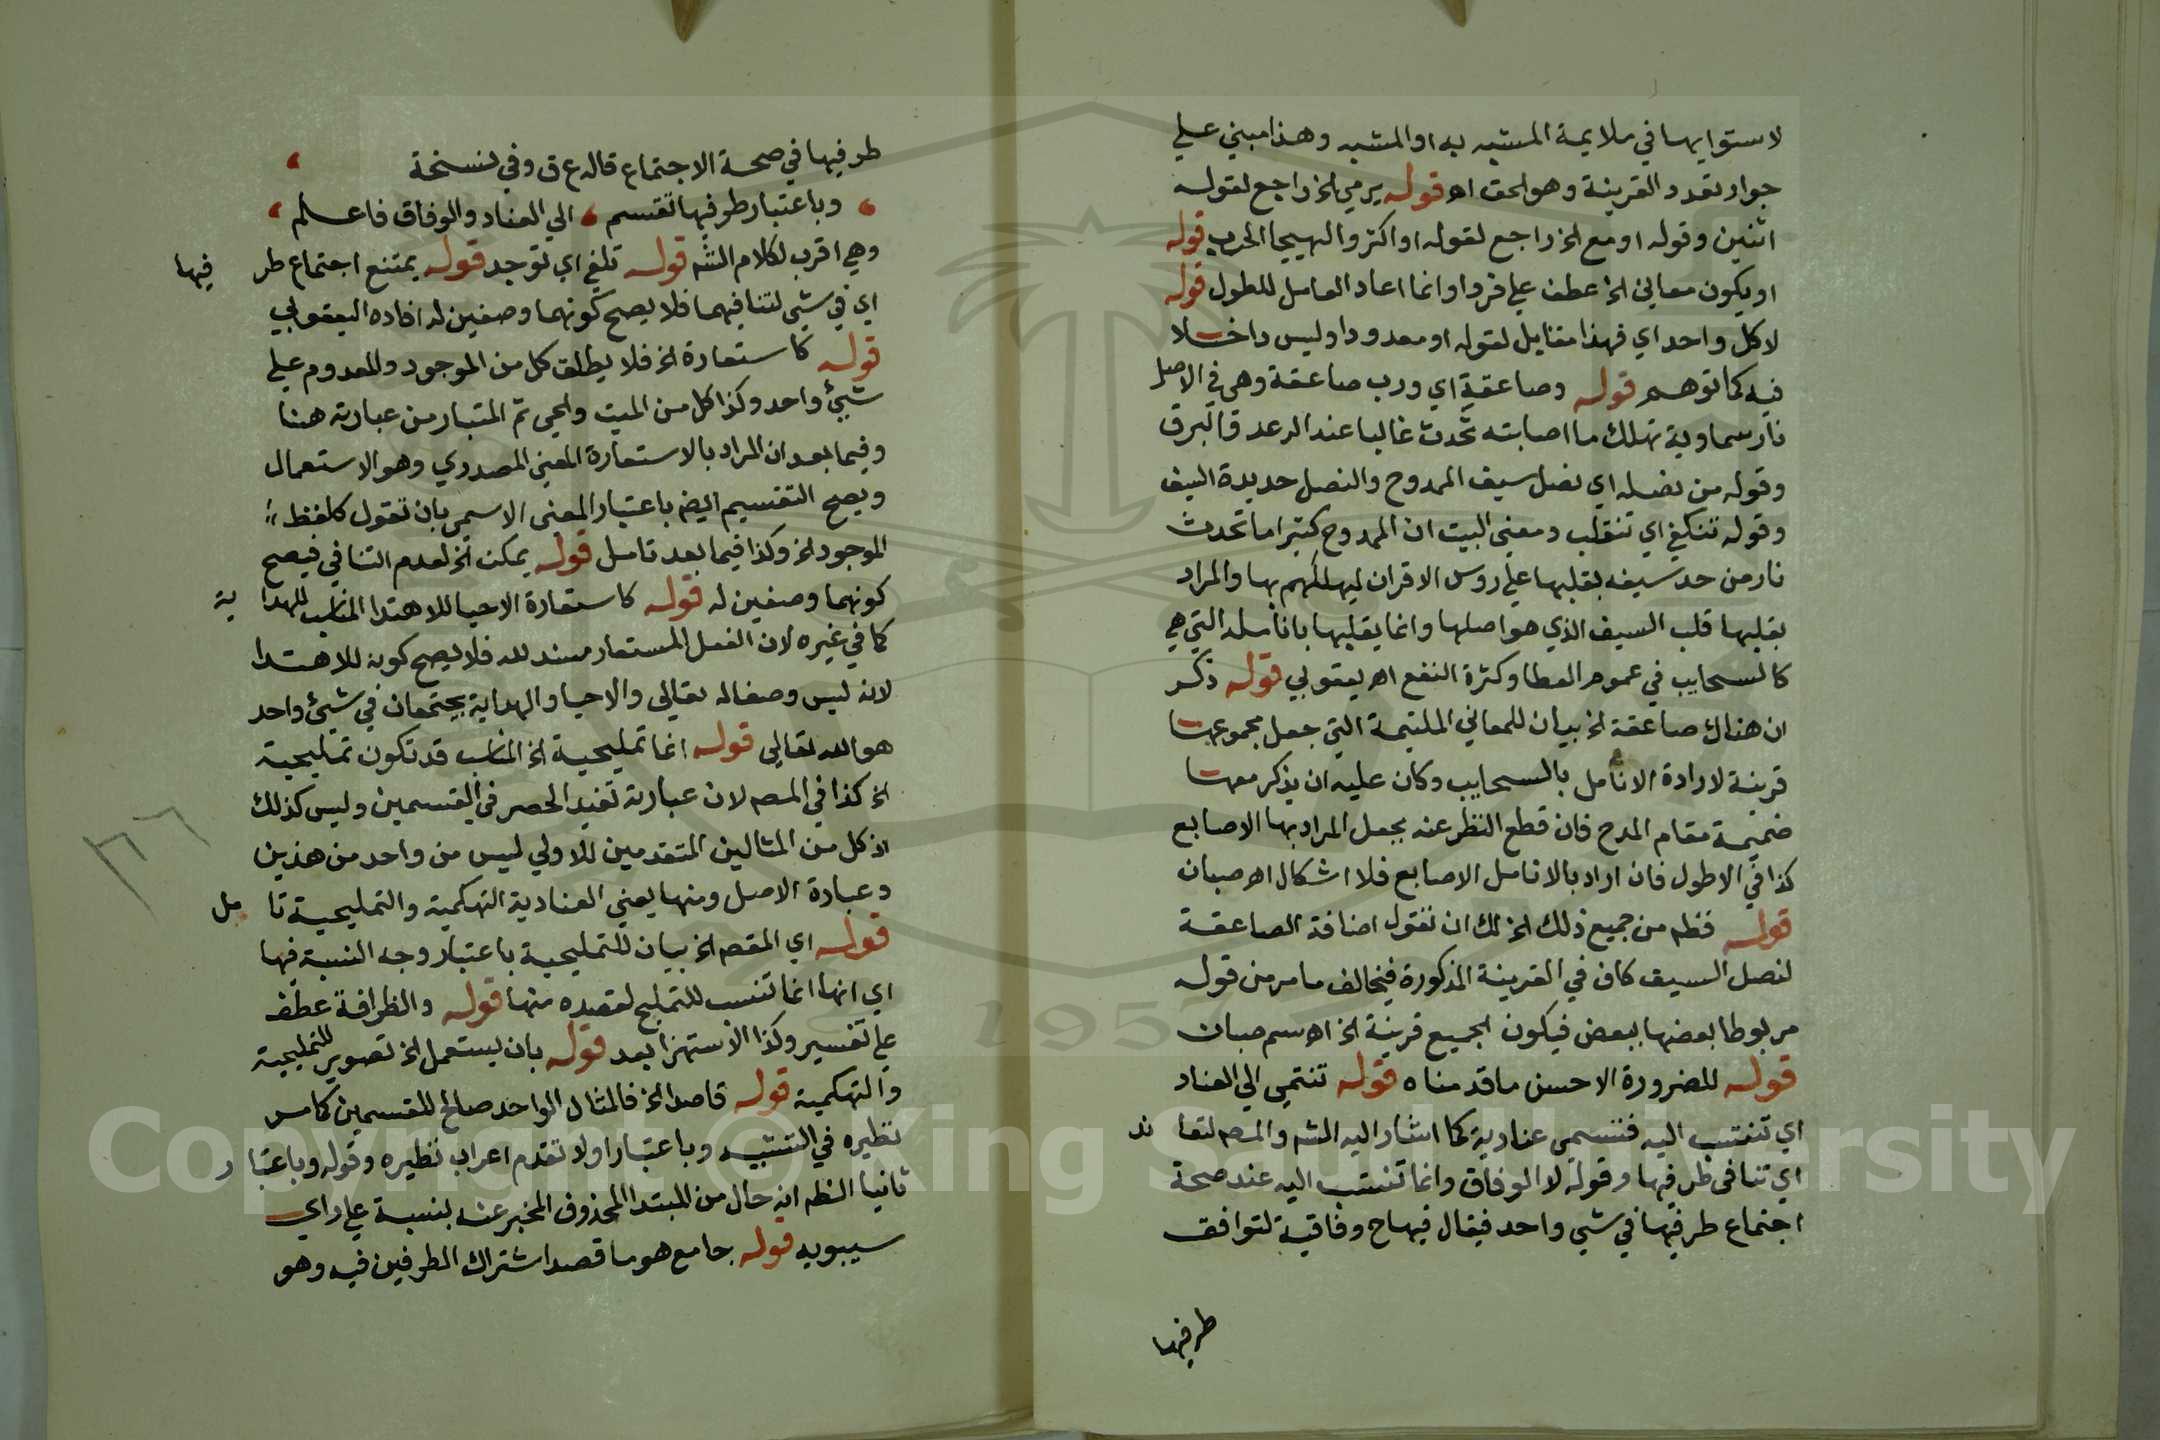 لاستوايها في ملايمة المشبه به او المشبه وهذا مبني علي
جواز تعدد القرينة وهو الحق اه قوله يرمي الخ راجع لقوله
اثنين وقوله او مع الخ راجع لقوله او اكثر والهيجا الحرب قوله
او يكون معاني الخ عطف علي فردا وانما اعاد العامل للطول قوله
لا كل واحد اي فهذا مقابل لقوله او معدودا وليس داخلا
فيه كما توهم قوله وصاعقة اي ورب صاعقة وهي في الاصل
نار سماوية تهلك ما اصابته تحدث غالبا عند الرعد والبرق
وقوله من نصله اي نصل سيف الممدوح والنصل حديدة السيف
وقوله تنكفي اي تنقلب ومعني البيت ان الممدوح كثيرا ما تحدث
نار من حد سيفه يقلبها علي روس الاقران ليهلكهم بها والمراد
بقلبها قلب السيف الذي هو اصلها وانما يقلبها بانامله التي هي
كالسحايب في عموم العطا وكثرة النفع اه يعقوبي قوله ذكر
ان هناك صاعقة الخ بيان للمعاني الملتيمة التي جعل مجموعها
قرينة لارادة الانامل بالسحايب وكان عليه ان يذكر معها
ضميمة مقام المدح فان قطع النظر عنه يجعل المراد بها الاصابع
كذا في الاطول فان اراد بالانامل الاصابع فلا اشكال اه صبان
قوله فظهر من جميع ذلك الخ لك ان تقول اضافة الصاعقة
لنصل السيف كاف في القرينة المذكورة فيخالف ما مر من قوله
مربوطا بعضها ببعض فيكون الجميع قرينة الخ اه سم صبان
قوله للضرورة الاحسن ما قدمناه قوله تنتمي الي العناد
اي تنتسب اليه فتسمي عنادية كما اشار اليه الشم والمصم لتعاند
اي تنافي طرفيها وقوله لا الوفاق وانما تنتسب اليه عند صحة
اجتماع طرفيها في شي واحد فيقال فيها ح وفاقية لتوافق
طرفيها
طرفيها في صحة الاجتماع قاله ع ق وفي نسخة
وباعتبار طرفيها تقسم الي العناد والوفاق فاعلم
وهي اقرب لكلام الشم قوله تلفي اي توجد قوله يمتنع اجتماع طرفيها
اي في شي لتنافيهما فلا يصح كونهما وصفين له افاده اليعقوبي
قوله كاستعارة الخ فلا يطلق كل من الموجود والمعدوم علي
شيئ واحد وكذا كل من الميت والحي ثم المتبار من عبارته هنا
وفيما بعد ان المراد بالاستعارة المعني المصدري وهو الاستعمال
ويصح التقسيم ايضم باعتبار المعني الاسمي بان تقول كلفظ
الموجود الخ وكذا فيما بعد تامل قوله يمكن الخ لعدم التنافي فيصح
كونهما وصفين له قوله كاستعارة الاحيا للاهتدا المناسب للهداية
كما في غيره لان الفعل المستعار مسند لله فلا يصح كونه للاهتدا
لانه ليس وصفا له تعالي والاحيا والهداية يجتمعان في شئ واحد
هو الله تعالي قوله انما تمليحية الخ المناسب قد تكون تمليحية
الخ كذا في المصم لان عبارته تفيد الحصر في القسمين وليس كذلك
اذ كل من المثالين المتقدمين للاولي ليس من واحد من هذين
وعبارة الاصل ومنها يعني العنادية التهكمية والتمليحية تامل
قوله اي المقصم الخ بيان للتمليحية باعتبار وجه النسبة فيها
اي انها انما تنسب للتمليح لقصده منها قوله والظرافة عطف
علي تفسير وكذا الاستهزا بعد قوله بان يستعمل الخ تصوير للتمليحية
والتهكمية قوله قاصدا الخ فالمثال الواحد صالح للقسمين كما مر
نظيره في التشبيه وباعتبار اولا تقدم اعراب نظيره وقوله وباعتبار
ثانيا الظم انه حال من المبتدا المحذوف المخبر عنه بنسبة علي راي
سيبويه قوله جامع هو ما قصد اشتراك الطرفين فيه وهو
٢٦
1957
Copyright © King Saud University